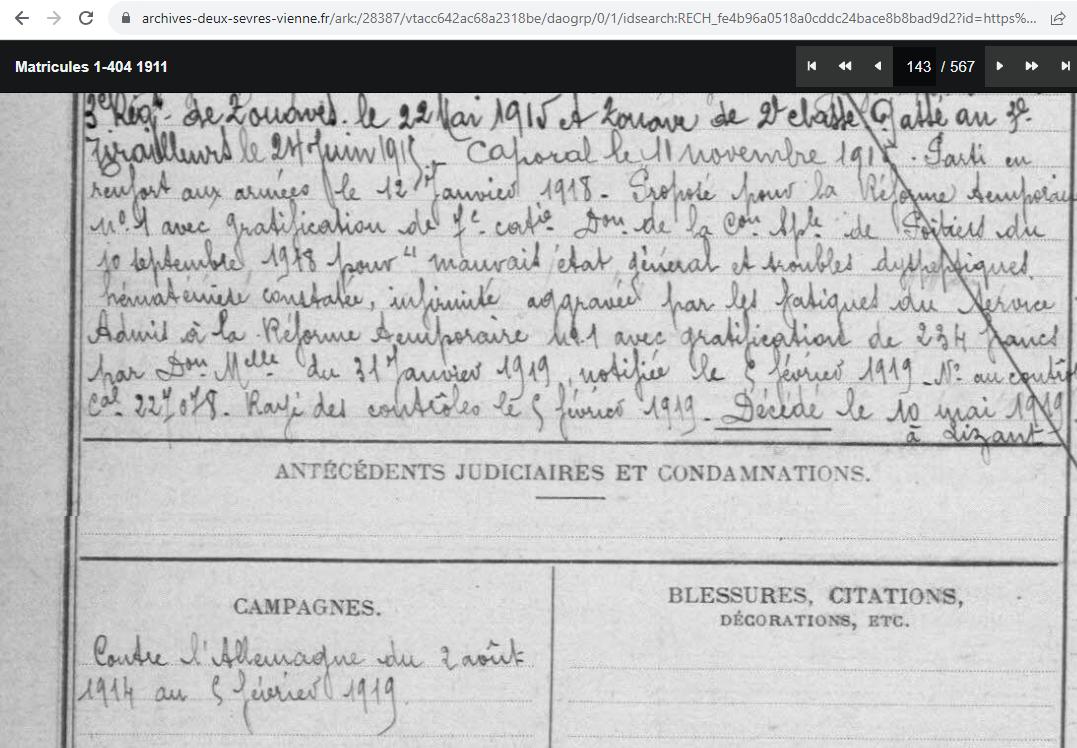 archives-deux-sevres-vienne.fr/ark:/28387/vtacc642ac68a2318be/daogrp/0/1/idsearch:RECH_fe4b96a0518a0cddc24bace8b8bad9d2?id=https%...
Matricules 1-404 1911
143 / 567
3e Régt de Zouaves. le 22 Mai 1915 et Zouave de 2e classe Passé au 3e
Tirailleurs le 24 Juin 1915 Caporal le 11 novembre Parti en
renfort aux armées le 12 Janvier 1918. Proposé pour la Réforme temporaire
no 1 avec gratification de 7e catie Don de la Con Sple de Poitiers du
10 septembre 1918 pour "mauvais état général et troubles dyspeptiques.
hématémèse constatée, infirmité aggravée par les fatigues du service
Admis à la Réforme temporaire no 1 avec gratification de 234 francs
par Don Melle du 31 Janvier 1919, notifiée le 5 février 1919. No au contrôle
Cal 227078. Rayé des contrôles le 5 février 1919. Décédé le 10 mai 1919
à Lizant
ANTÉCÉDENTS JUDICIAIRES ET CONDAMNATIONS.
CAMPAGNES.
Contre l'Allemagne du 2 août
1914 au 5 février 1919
BLESSURES, CITATIONS,
DÉCORATIONS, ETC.